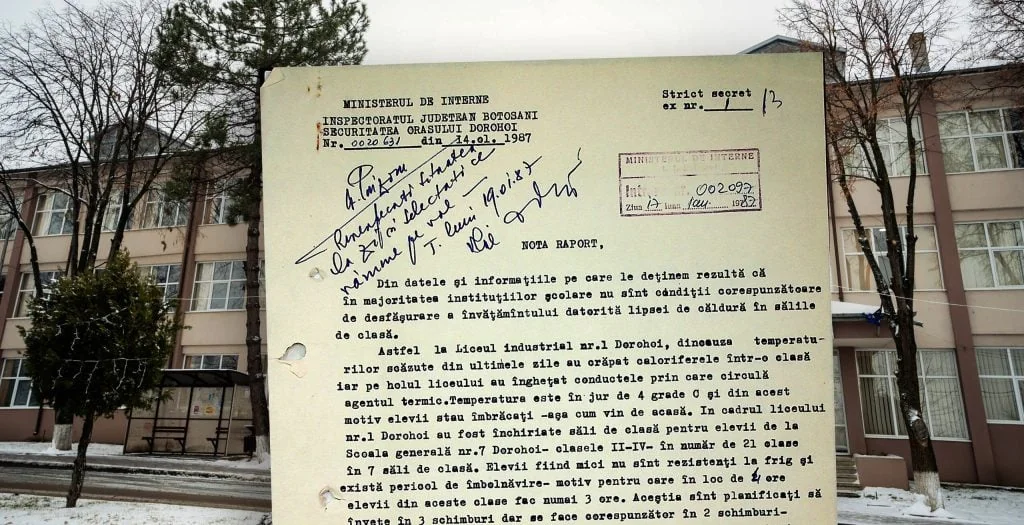 MINISTERUL DE INTERNE
Strict secret
ex nr. 1 /3
INSPECTORATUL JUDETEAN BOTOSANI
SECURITATEA ORASULUI DOROHOI
Nr. 0020631 din 14.o1. 1987
MINISTERUL DE INTERNE
Intrare nr. 002097
Ziua 17 luna Ian 1987
la zi și selectați ce
rămîne pe val
T. luni 19.01.87
NOTA RAPORT,
Din datele și informațiile pe care le deținem rezultă că
în majoritatea instituțiilor școlare nu sînt condiții corespunzătoare
de desfășurare a învățămîntului datorită lipsei de căldură în sălile
de clasă.
Astfel la Liceul industrial nr.1 Dorohoi, dincauza temperatu-
rilor scăzute din ultimele zile au crăpat caloriferele într-o clasă
iar pe holul liceului au înghețat conductele prin care circulă
agentul termic.Temperatura este în jur de 4 grade C și din acest
motiv elevii stau îmbrăcați -așa cum vin de acasă. In cadrul liceului
nr.1 Dorohoi au fost închiriate săli de clasă pentru elevii de la
Scoala generală nr.7 Dorohoi- clasele II-IV- în număr de 21 clase
în 7 săli de clasă. Elevii fiind mici nu sînt rezistenți la frig și
există pericol de îmbolnăvire- motiv pentru care în loc de 4 ore
elevii din aceste clase fac numai 3 ore. Aceștia sînt planificați să
învețe în 3 schimburi dar se face corespunzător în 2 schimburi-